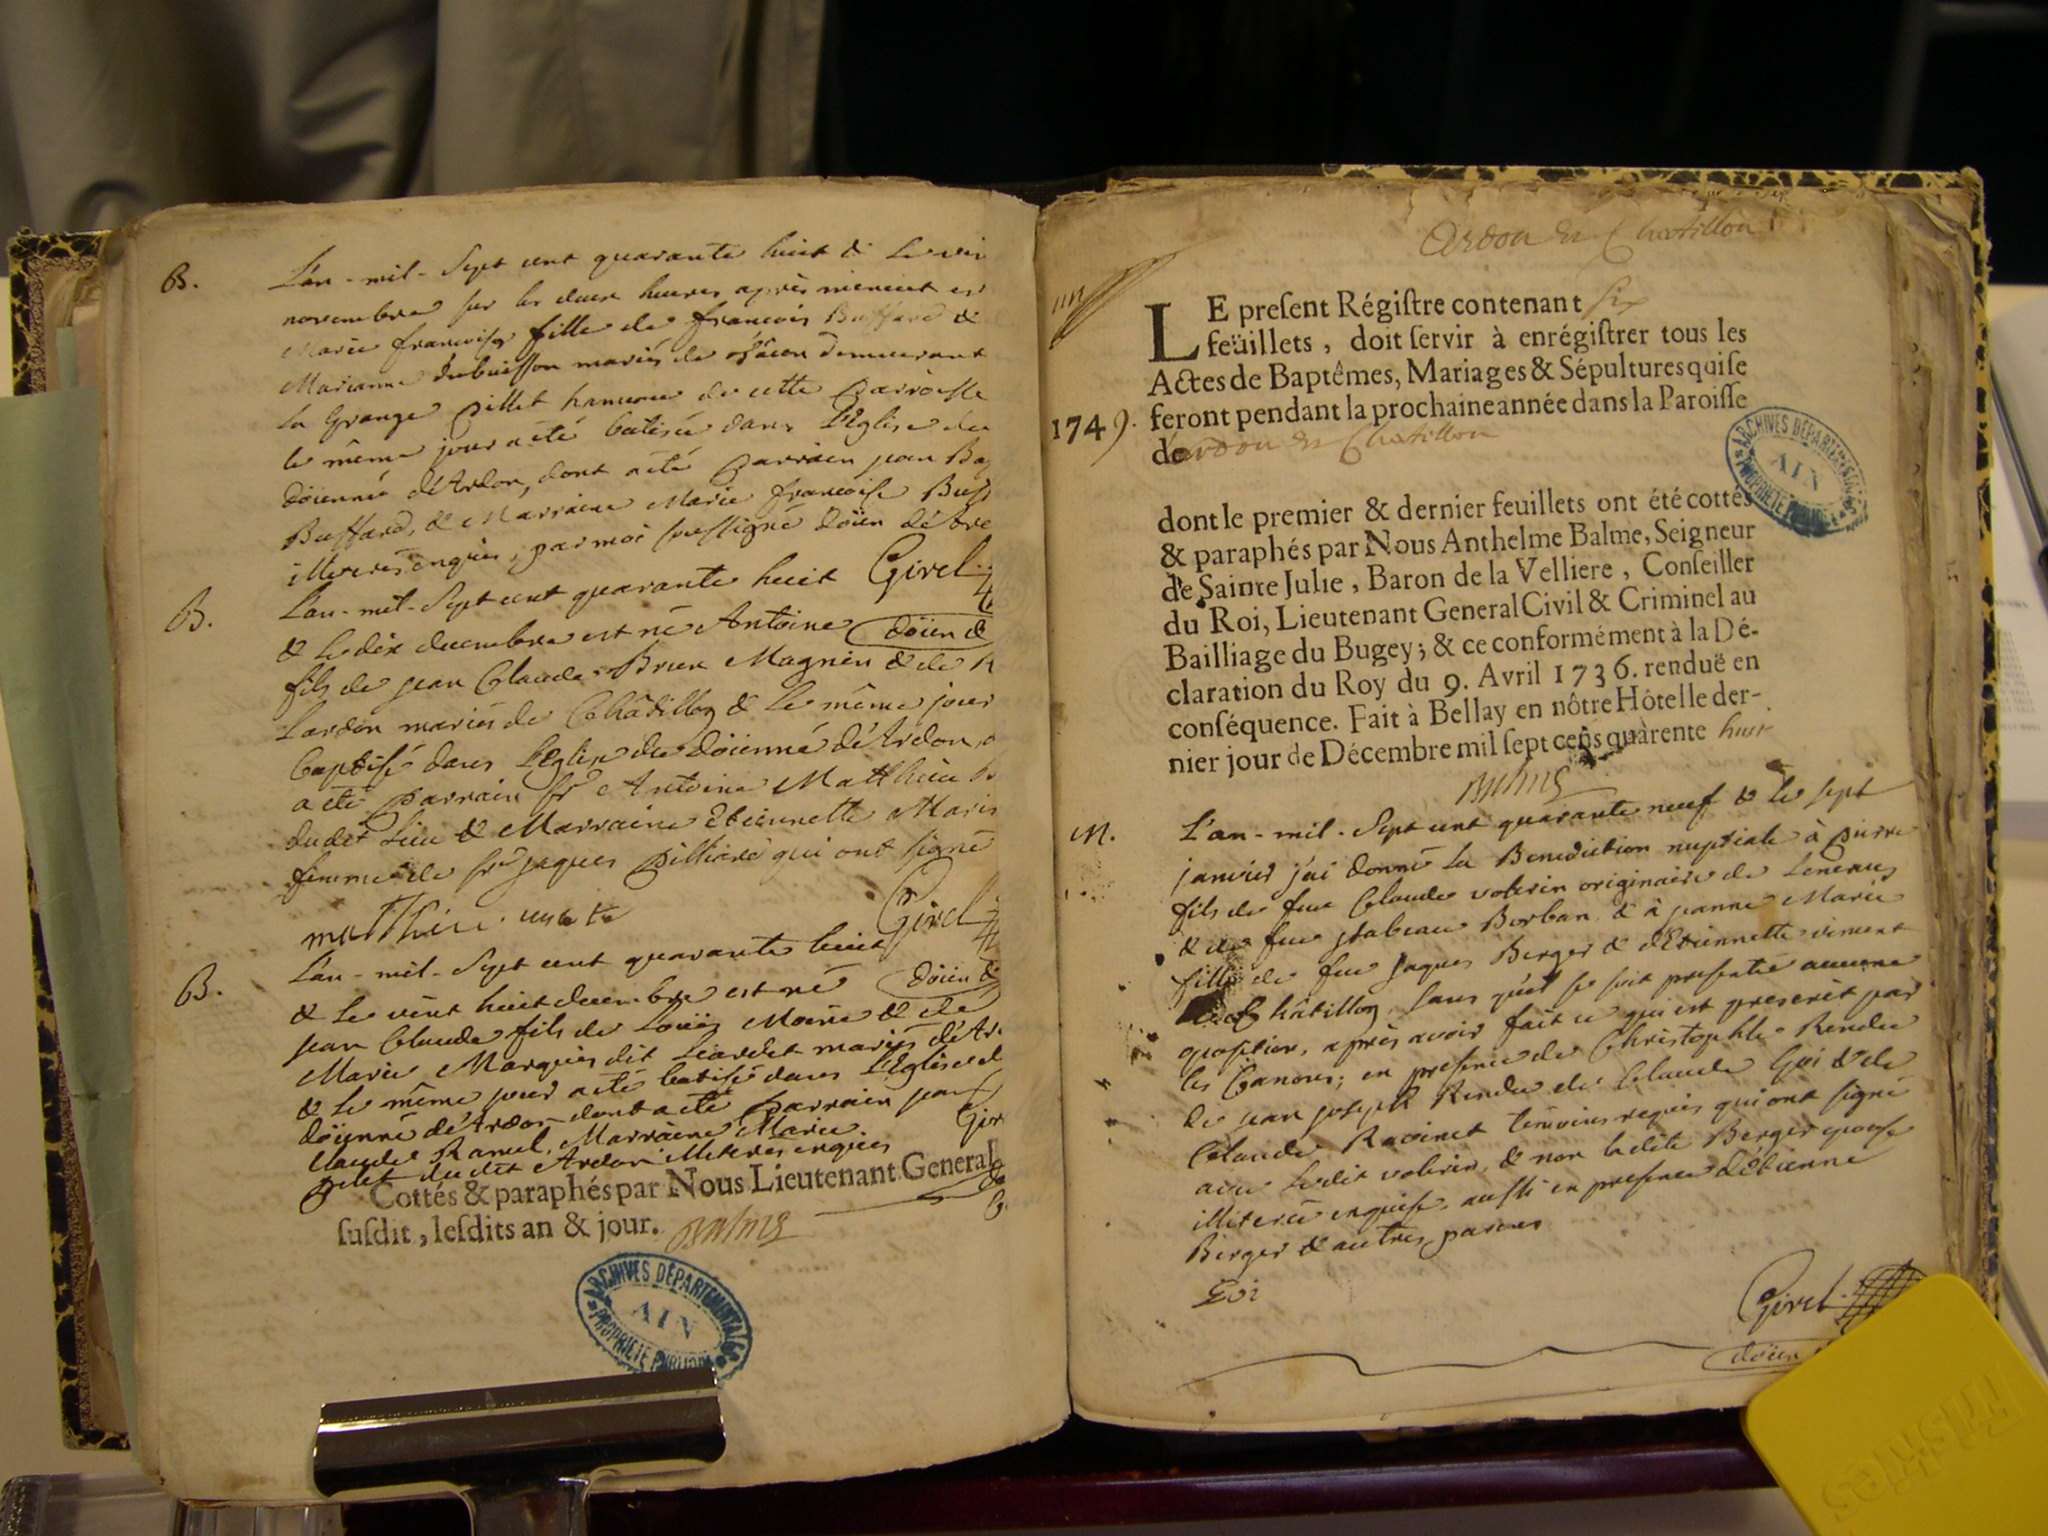 B.
L'an-mil-Sept cent quarante huit & le
novembre sur les deux heures après est
Marie françoise fille de françois Buffard &
Marianne dubuisson mariés de demeurant
la Grange Pillet hameau de cette Parroisse
le même jour a été batisée dans l'Eglise du
doïenné d'Ardon, dont a été Parrain jean
Buffard, & Marraine Marie françoise
illiterés enquis, par moi soussigné doïen
Girel
B.
L'an-mil-Sept cent quarante huit
& le dix decembre est né Antoine doïen d
fils de jean Claude Brun Magnin & de
Lardon mariés de Châtillon & le même jour
baptisé dans l'Eglise du doïenné d'Ardon,
a été Parrain sr Antoine Matthieu
dudit lieu & Marraine Etiennette
femme de sr jaques qui ont signé
Girel
B.
L'an-mil-Sept cent quarante huit
& le vint huit decembre est né doïen d
jean Claude fils de Loüis Moine & de
Marie Marquis dit Liardet mariés d'Ar
& le même jour a été batisé dans l'Eglise d
doïenné d'Ardon dont a été Parrain jean
Claude Ramel, Marraine Marie
dudit Ardon illiterés enquis
Cottés & paraphés par Nous Lieutenant General
ſuſdit, leſdits an & jour. Balme
ARCHIVES DÉPARTEMENTALES
AIN
PROPRIETÉ PUBLIQUE
Ardon En Chatillon
LE preſent Régiſtre contenant six
feüillets, doit ſervir à enrégiſtrer tous les
Actes de Baptêmes, Mariages & Sépultures qui ſe
1749. feront pendant la prochaine année dans la Paroiſſe
de ardon En Chatillon
ARCHIVES DÉPARTEMENTALES
AIN
PROPRIETÉ PUBLIQUE
dont le premier & dernier feuillets ont été cottés
& paraphés par Nous Anthelme Balme, Seigneur
de Sainte Julie, Baron de la Velliere, Conſeiller
du Roi, Lieutenant General Civil & Criminel au
Bailliage du Bugey; & ce conformément à la Dé-
claration du Roy du 9. Avril 1736. renduë en
conſéquence. Fait à Bellay en nôtre Hôtel le der-
nier jour de Décembre mil ſept cens quàrente huit
Balme
M.
L'an-mil-Sept cent quarante neuf & le sept
janvier j'ai donné la Benediction nuptiale à pierre
fils de feu Claude volerin originaire de
& de feue jsabeau Borban & à jeanne Marie
fille de feu Jaques Berger & d'Etiennette
de Châtillon, sans qu'il se soit presentée aucune
oposition, après avoir fait ce qui est prescrit par
les Canons; en presence de Christophle Rendu
de jean joseph Rendu de Claude Goi & de
Claude Ravinet temoins requis qui ont signé
avec ledit volerin, & non ladite Berger epouse
illiterée enquise, aussi en presence d'Etienne
Berger & autres parens
Goi
Girel
doïen